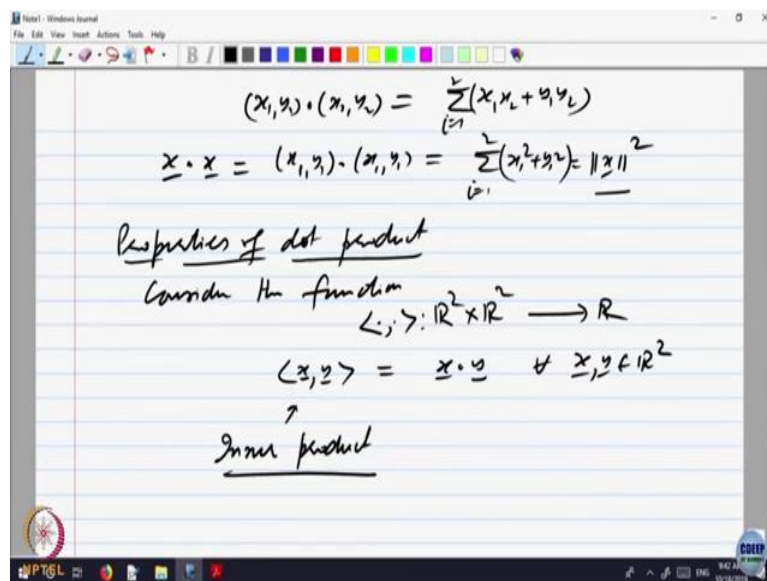 Note1 - Windows Journal
File Edit View Insert Actions Tools Help
B I
(x₁, y₁) · (x₂, y₂) = ∑ᵢ₌₁² (x₁x₂ + y₁y₂)
x · x = (x₁, y₁) · (x₁, y₁) = ∑ᵢ₌₁² (x₁² + y₁²) = ||x||²
Properties of dot product
Consider the function
<·,·> : ℝ² × ℝ² → ℝ
<x, y> = x · y ∀ x, y ∈ ℝ²
↑
Inner product
NPTEL
CDEEP
ENG
9:42 A